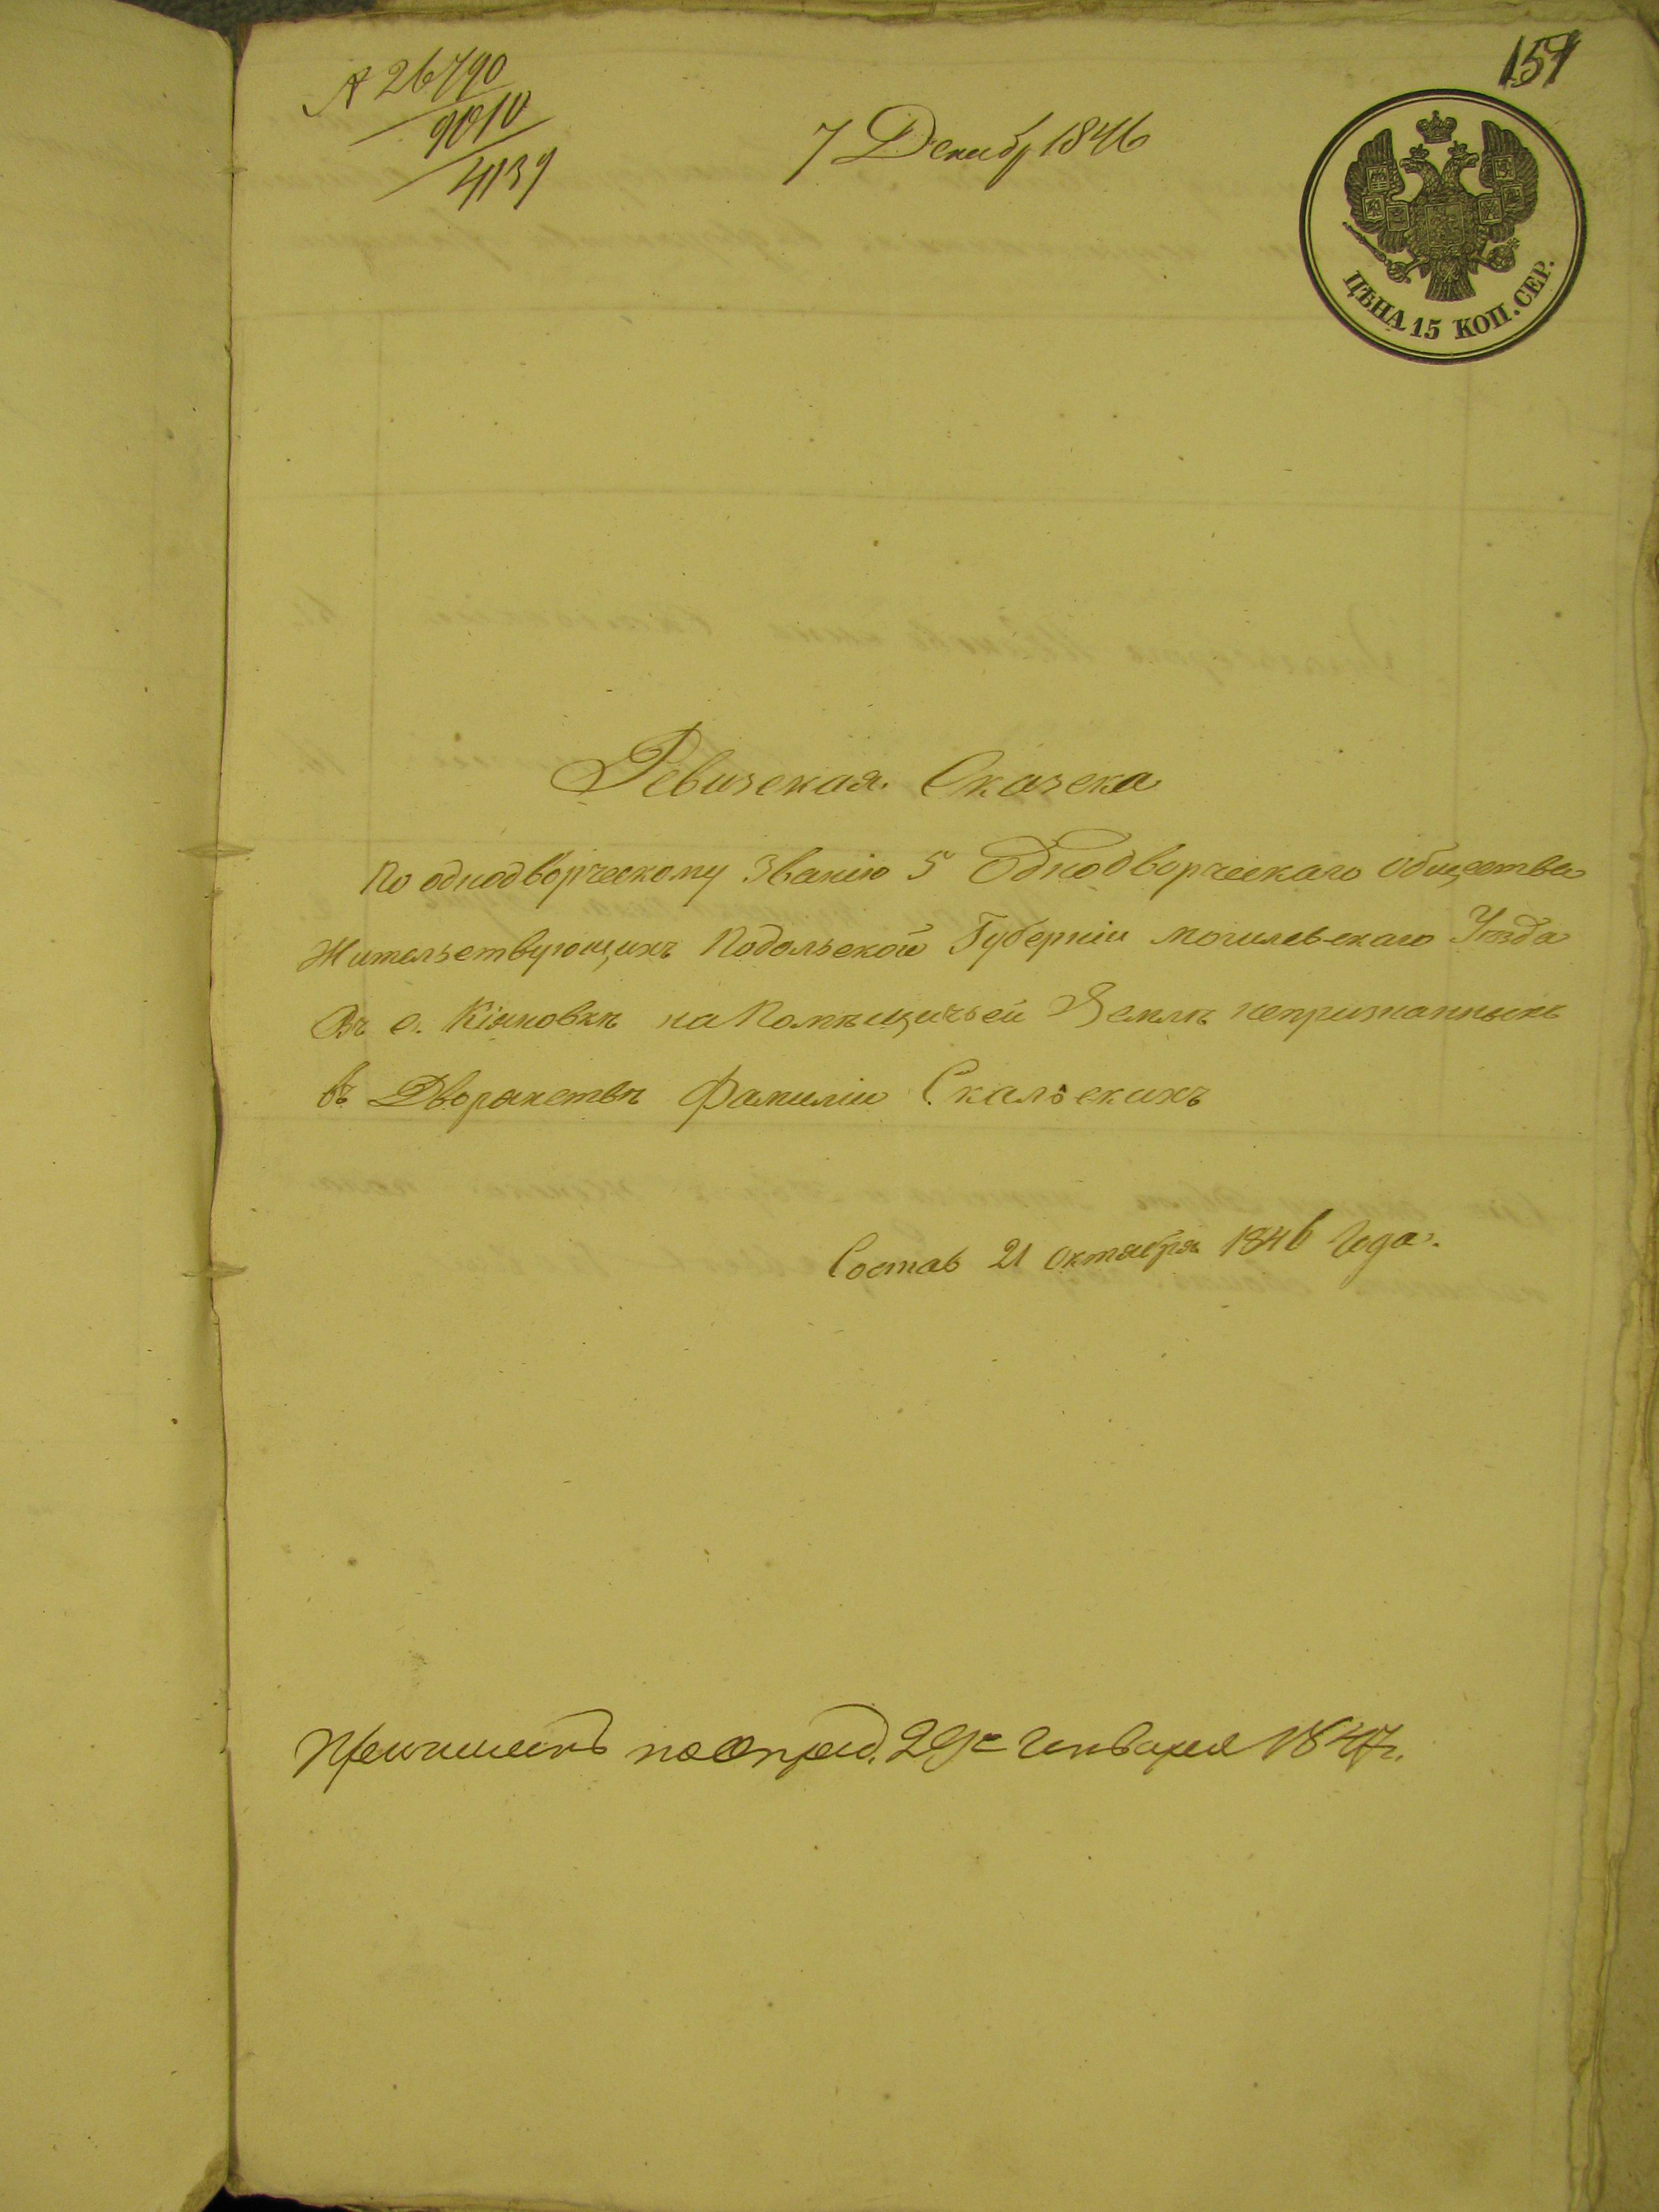 157
№ 26790
9010
4139
7 Декабр 1846
ЦѢНА 15 КОП. СЕР.
Ревизская Сказка
По однодворческому Званію 5 Однодворческаго Общества
Жительствующихъ Подольской Губерніи Могилевскаго Уѣзда
Въ с. Кіяновкѣ на Помѣщичьей Землѣ непризнанныхъ
въ Дворянствѣ Фамиліи Скальскихъ
Состав 21 Октября 1846 Года.
по опред. 29го Генваря 1847г.